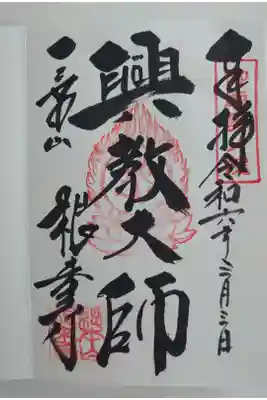 奉拝 令和六年三月三日
興教大師
一乗山 根来寺